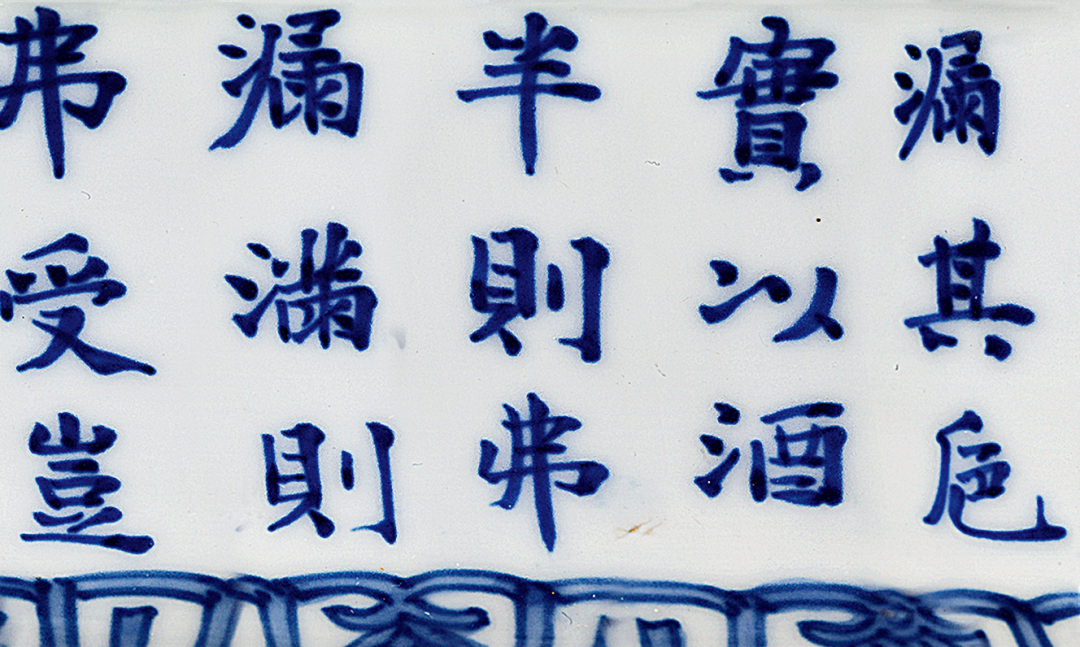 漏其巵
實以酒
半則弗
漏滿則
弗受豈